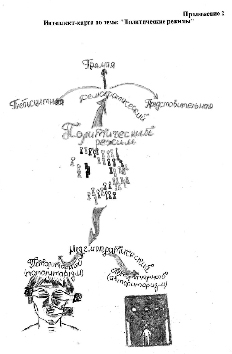 Приложение 2
Интеллект-карта по теме: "Политические режимы"
Прямая
Демократический
Плебисцитная
Представительная
Политический
режим
Недемократический
Тоталитарный
(тоталитаризм)
Авторитарный
(авторитаризм)